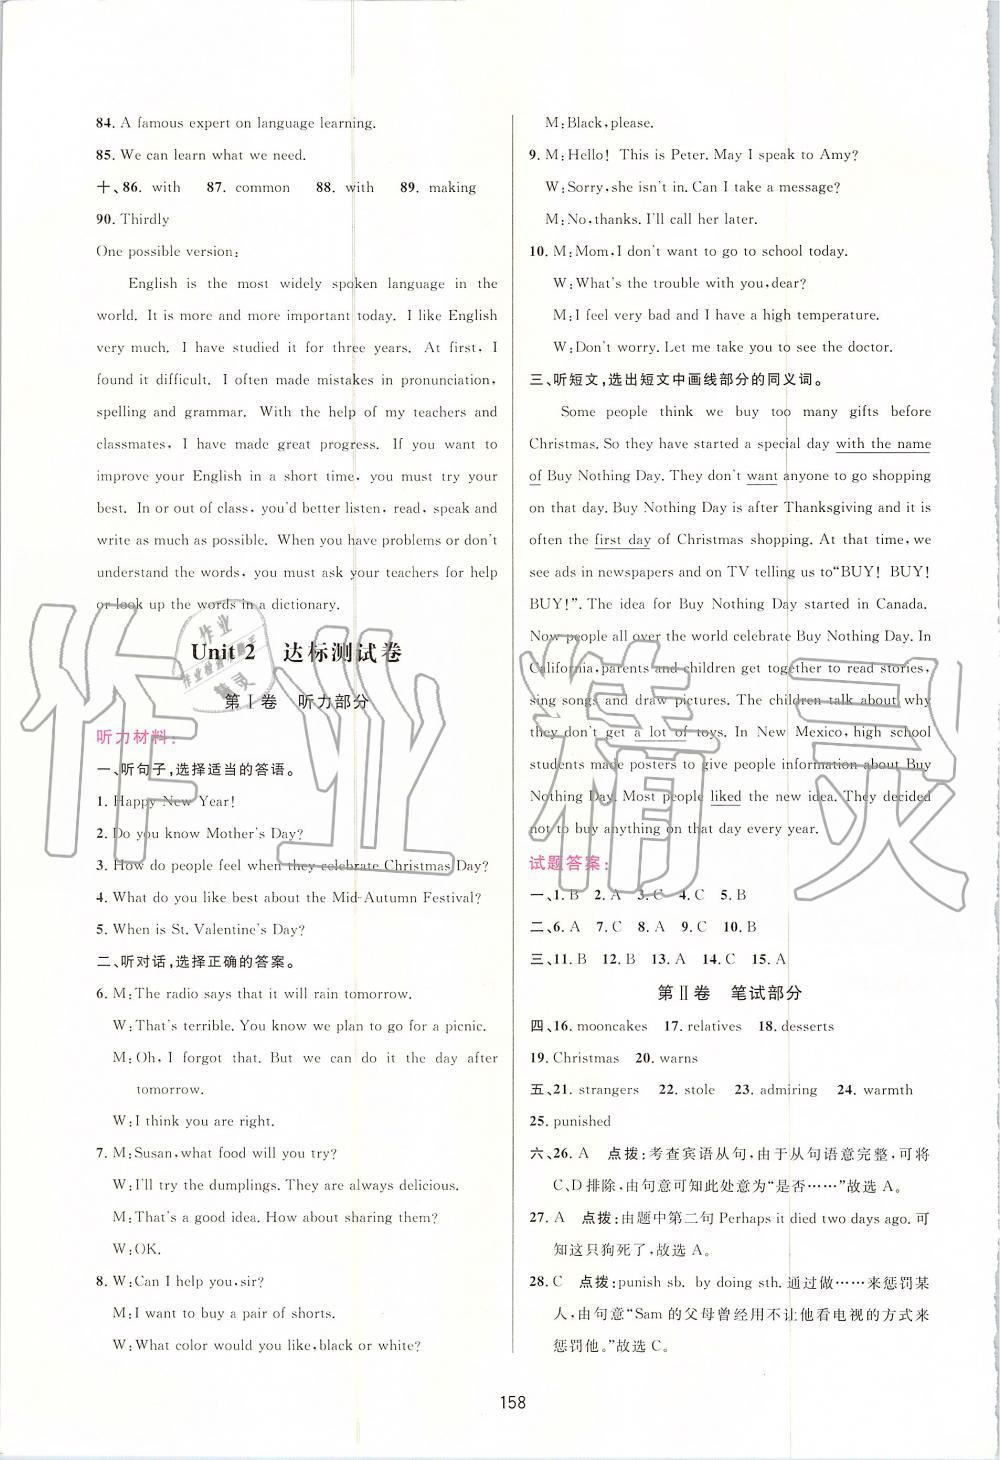 84. A famous expert on language learning.
85. We can learn what we need.
十、86. with 87. common 88. with 89. making
90. Thirdly
One possible version:
English is the most widely spoken language in the
world. It is more and more important today. I like English
very much. I have studied it for three years. At first, I
found it difficult. I often made mistakes in pronunciation,
spelling and grammar. With the help of my teachers and
classmates, I have made great progress. If you want to
improve your English in a short time, you must try your
best. In or out of class, you'd better listen, read, speak and
write as much as possible. When you have problems or don't
understand the words, you must ask your teachers for help
or look up the words in a dictionary.
Unit 2 达标测试卷
第Ⅰ卷 听力部分
听力材料:
一、听句子,选择适当的答语。
1. Happy New Year!
2. Do you know Mother's Day?
3. How do people feel when they celebrate Christmas Day?
4. What do you like best about the Mid-Autumn Festival?
5. When is St. Valentine's Day?
二、听对话,选择正确的答案。
6. M:The radio says that it will rain tomorrow.
W:That's terrible. You know we plan to go for a picnic.
M:Oh, I forgot that. But we can do it the day after
tomorrow.
W:I think you are right.
7. M:Susan,what food will you try?
W:I'll try the dumplings. They are always delicious.
M:That's a good idea. How about sharing them?
W:OK.
8. W:Can I help you,sir?
M:I want to buy a pair of shorts.
W:What color would you like,black or white?
M:Black,please.
9. M:Hello! This is Peter. May I speak to Amy?
W:Sorry,she isn't in. Can I take a message?
M:No,thanks. I'll call her later.
10. M:Mom,I don't want to go to school today.
W:What's the trouble with you,dear?
M:I feel very bad and I have a high temperature.
W:Don't worry. Let me take you to see the doctor.
三、听短文,选出短文中画线部分的同义词。
Some people think we buy too many gifts before
Christmas. So they have started a special day with the name
of Buy Nothing Day. They don't want anyone to go shopping
on that day. Buy Nothing Day is after Thanksgiving and it is
often the first day of Christmas shopping. At that time, we
see ads in newspapers and on TV telling us to“BUY! BUY!
BUY!”. The idea for Buy Nothing Day started in Canada.
Now people all over the world celebrate Buy Nothing Day. In
California,parents and children get together to read stories,
sing songs and draw pictures. The children talk about why
they don't get a lot of toys. In New Mexico, high school
students made posters to give people information about Buy
Nothing Day. Most people liked the new idea. They decided
not to buy anything on that day every year.
试题答案:
一、1. B 2. A 3. C 4. C 5. B
二、6. A 7. C 8. A 9. C 10. B
三、11. B 12. B 13. A 14. C 15. A
第Ⅱ卷 笔试部分
四、16. mooncakes 17. relatives 18. desserts
19. Christmas 20. warns
五、21. strangers 22. stole 23. admiring 24. warmth
25. punished
六、26. A 点拨:考查宾语从句,由于从句语意完整,可将
C、D排除,由句意可知此处意为“是否……”故选A。
27. A 点拨:由题中第二句 Perhaps it died two days ago. 可
知这只狗死了,故选A。
28. C 点拨:punish sb. by doing sth. 通过做……来惩罚某
人,由句意“Sam的父母曾经用不让他看电视的方式来
惩罚他。”故选C。
158
作业精灵
作业
作业检查小助手
精灵